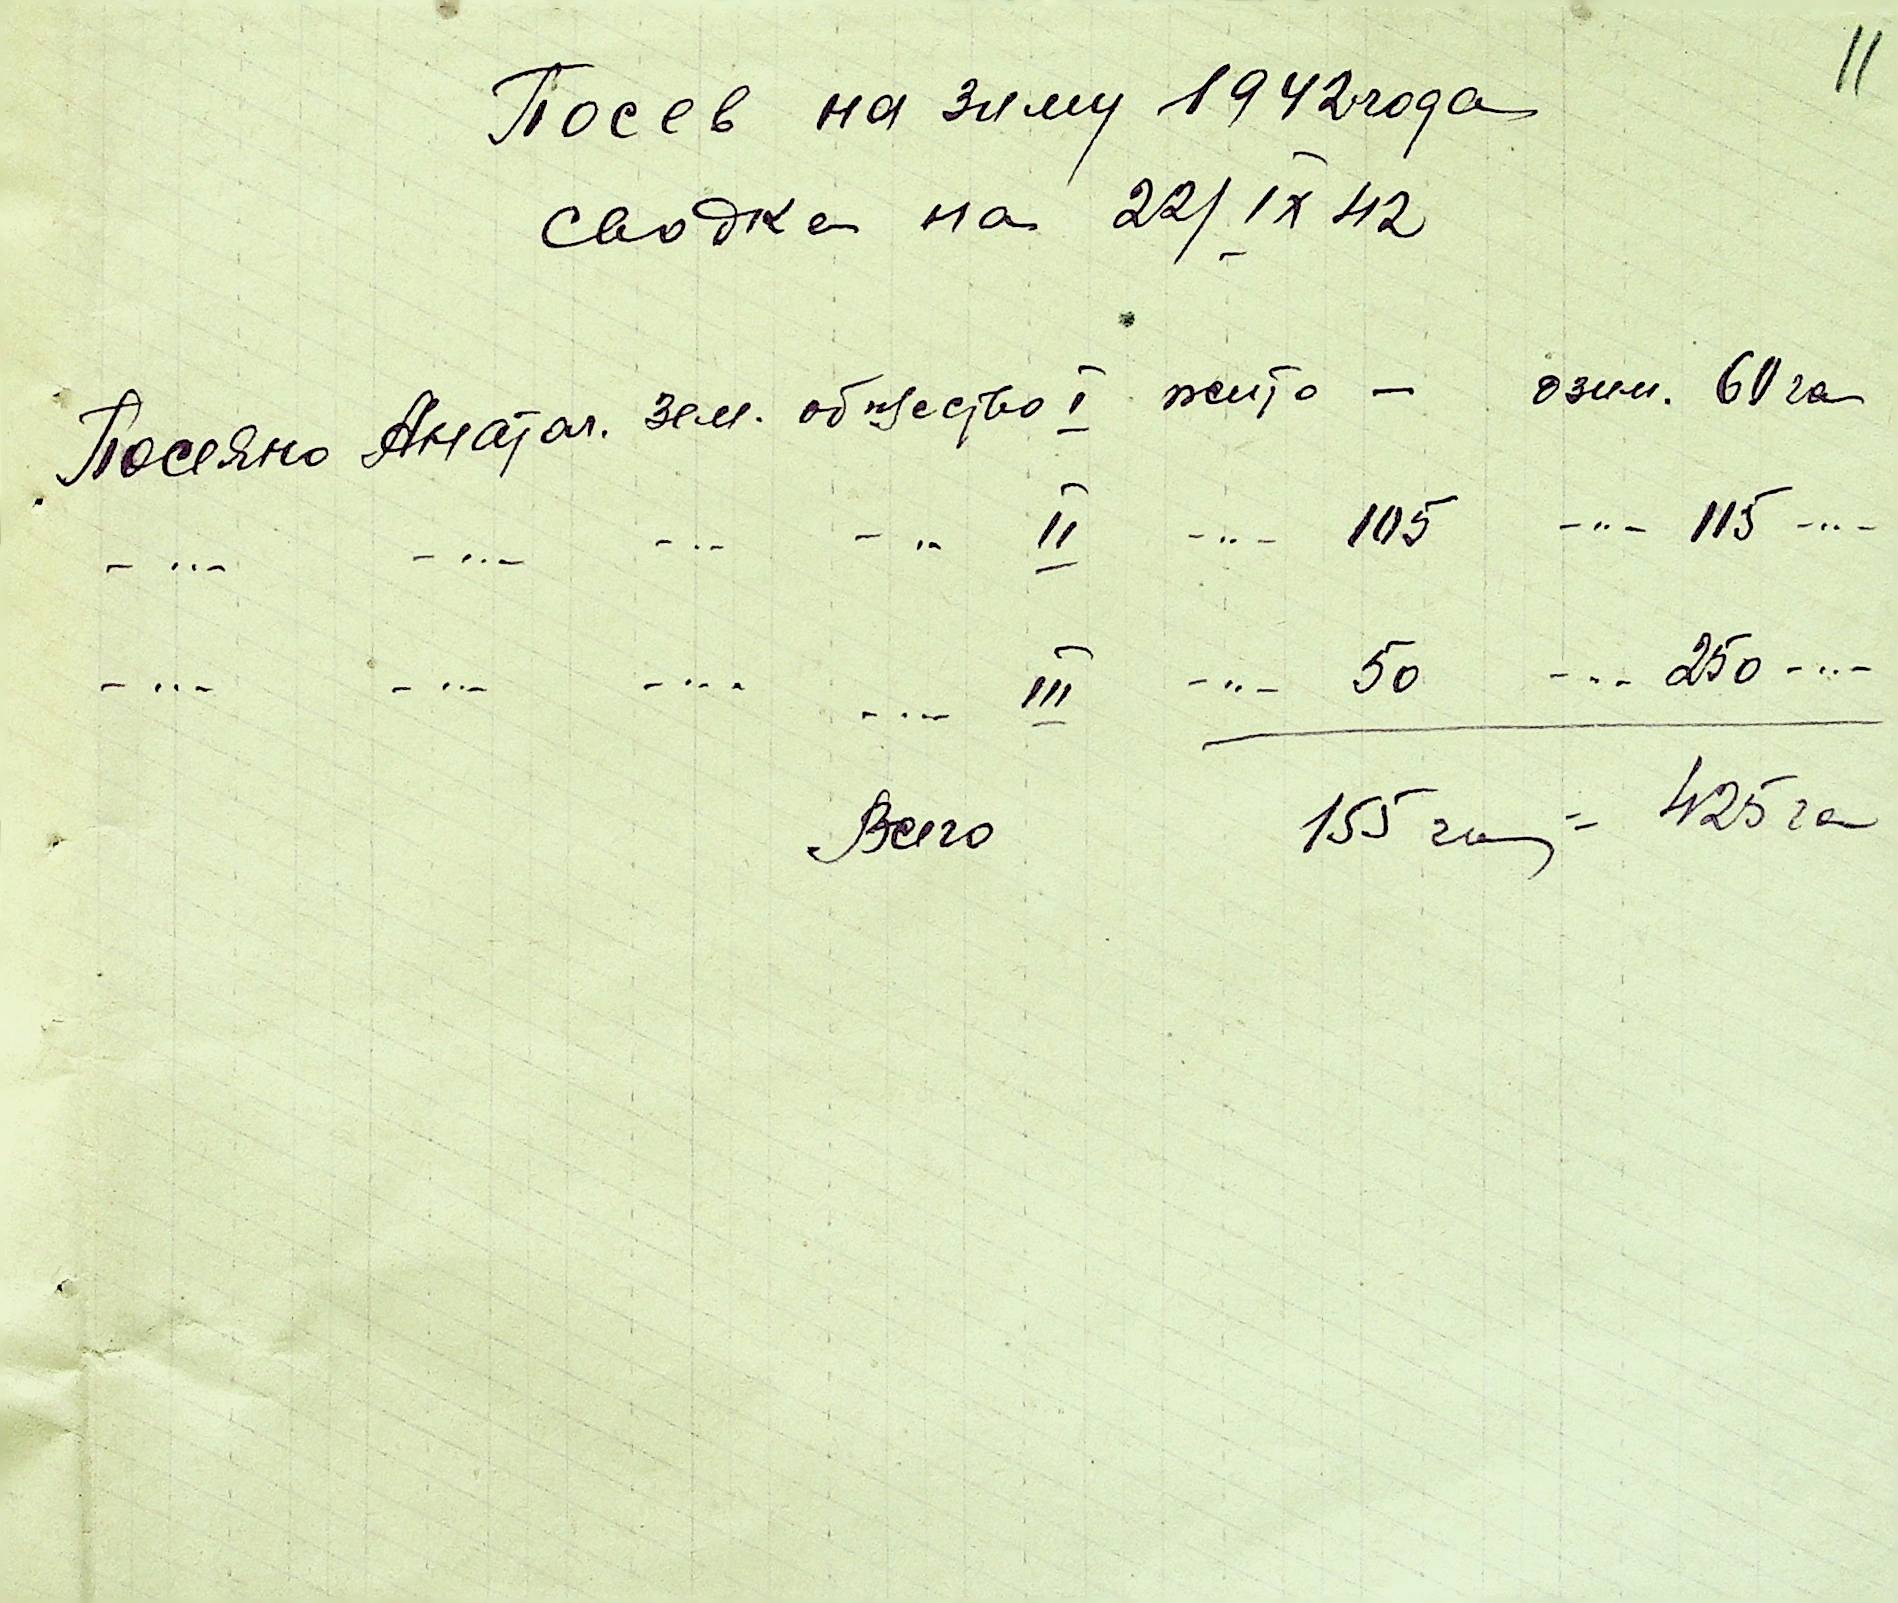 11
Посев на зиму 1942 года
сводка на 22/IX 42
Посеяно Анатол. зем. общество I жито — озим. 60 га
-"- -"- -"- -"- II -"- 105 -"- 115 -"-
-"- -"- -"- -"- III -"- 50 -"- 250 -"-
Всего 155 га = 425 га